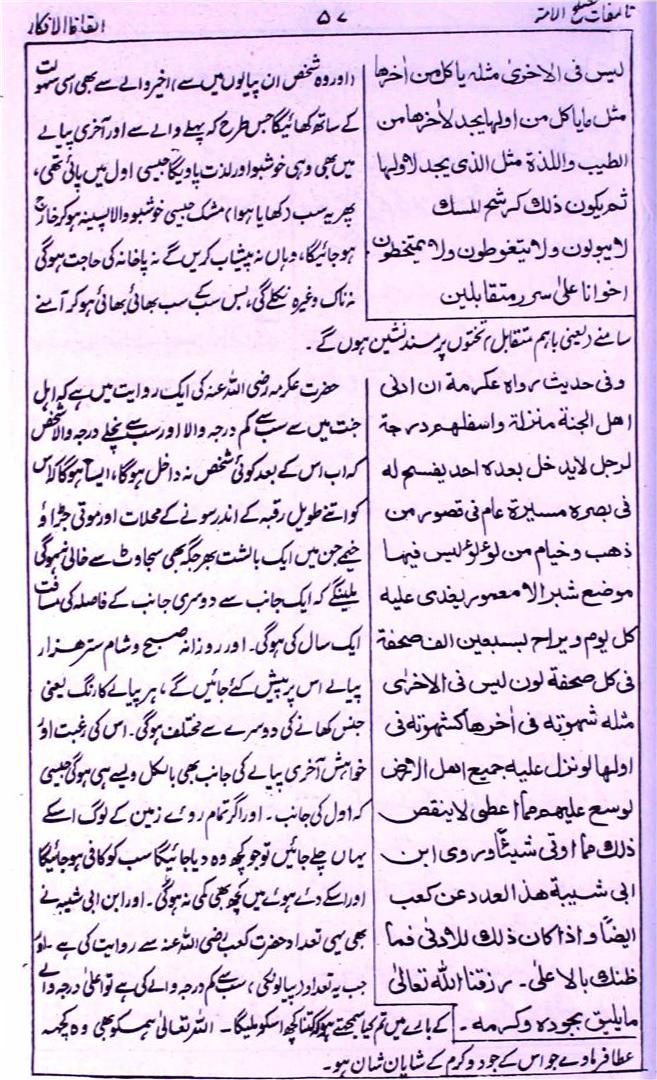 تالیفات مصلح الامتہ ۵۷ القاء الافکار
لیس فی الاخریٰ مثلہ یاکل من اٰخرھا
مثل مایاکل من اولھا یجد لاٰخرھا من
الطیب واللذة مثل الذی یجد لاولھا
ثم یکون ذلک کرشح المسک
لایبولون ولا یتغوطون ولا یمتخطون
اخوانا علیٰ سرر متقابلین
(اور وہ شخص ان پیالوں میں سے) اخیر والے سے بھی اسی سہولت
کے ساتھ کھائیگا جس طرح کہ پہلے والے سے اور آخری پیالے
میں بھی وہی خوشبو اور لذت پاویگا جیسی اول میں پائی تھی،
پھر یہ سب (کھایا ہوا) مشک جیسی خوشبو والا پسینہ ہو کر خارج
ہو جائیگا، وہاں نہ پیشاب کریں گے نہ پاخانہ کی حاجت ہوگی
نہ ناک وغیرہ نکلے گی، بس سب کے سب بھائی بھائی ہو کر آمنے
سامنے (یعنی باہم متقابل) تختوں پر مسند نشین ہوں گے۔
وفی حدیث رواہ عکرمة ان ادنی
اھل الجنة منزلة واسفلھم درجة
لرجل لاید خل بعدہ احد یفسح لہ
فی بصرہ مسیرة عام فی قصور من
ذھب وخیام من لؤلؤ لیس فیھا
موضع شبر الا معمور یغدی علیہ
کل یوم ویراح بسبعین الف صحفة
فی کل صحفة لون لیس فی الاخریٰ
مثلہ شھوتہ فی اٰخرھا کشھوتہ فی
اولھا لو نزل علیہ جمیع اھل الارض
لوسع علیھم مما اعطی لا ینقص
ذلک مما اوتی شیئًا وروی ابن
ابی شیبة ھذا العدد عن کعب
ایضًا واذا کان ذلک للادنیٰ فما
ظنک بالاعلی۔ رزقنا اللہ تعالیٰ
مایلیق بجودہ وکرمہ۔
حضرت عکرمہ رضی اللہ عنہ کی ایک روایت میں ہے کہ اہل
جنت میں سے سب سے کم درجہ والا اور سب سے نچلے درجہ والا شخص
کہ اب اس کے بعد کوئی شخص نہ داخل ہوگا، ایسا ہوگا کہ اس
کو اتنے طویل رقبہ کے اندر سونے کے محلات اور موتی جڑاؤ
خیمے جن میں ایک بالشت بھر جگہ بھی سجاوٹ سے خالی نہ ہوگی
ملینگے کہ ایک جانب سے دوسری جانب کے فاصلہ کی مسافت
ایک سال کی ہوگی۔ اور روزانہ صبح و شام ستر ہزار
پیالے اس پر پیش کئے جائیں گے، ہر پیالے کا رنگ یعنی
جنس کھانے کی دوسرے سے مختلف ہوگی۔ اس کی رغبت اور
خواہش آخری پیالے کی جانب بھی بالکل ویسے ہی ہوگی جیسی
کہ اول کی جانب۔ اور اگر تمام روئے زمین کے لوگ اسکے
یہاں چلے جائیں تو جو کچھ وہ دیا جائیگا سب کو کافی ہو جائیگا
اور اسکے دئے ہوئے میں کچھ بھی کمی نہ ہوگی۔ اور ابن ابی شیبہ نے
بھی یہی تعداد حضرت کعب رضی اللہ عنہ سے روایت کی ہے۔ اور
جب یہ تعداد (پیالونکی) سب سے کم درجہ والے کی ہے تو اعلیٰ درجہ والے
کے بارے میں تم کیا سمجھتے ہو کہ کتنا کچھ اسکو ملیگا۔ اللہ تعالیٰ ہمکو بھی وہ کچھ
عطا فرماوے جو اس کے جود و کرم کے شایان شان ہو۔